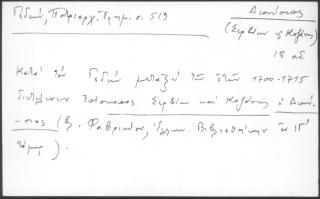 Γεδεών, Πατριαρχ. Ἐφημ. σ. 519
Διονύσιος
(Σερβίων & Κοζάνης)
18 αἰ.
Κατὰ τὸν Γεδεὼν μεταξὺ τῶν ἐτῶν 1700-1715
ἐπίσκοπος Σερβίων καὶ Κοζάνης ὁ Διονύ-
σιος (βλ. Φαβρικίου, Ἑλλην. Βιβλιοθήκην ΙΓ'
τόμος).